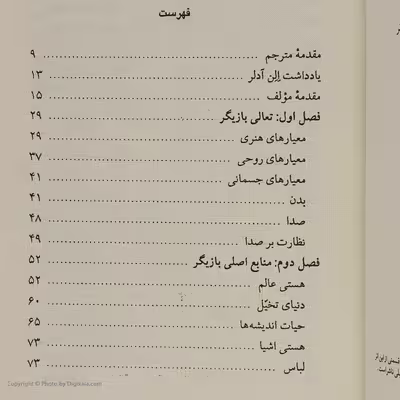 فهرست
مقدمهٔ مترجم ۹
یادداشت اِلن آدلر ۱۳
مقدمهٔ مؤلف ۱۵
فصل اول: تعالی بازیگر ۲۹
معیارهای هنری ۲۹
معیارهای روحی ۳۷
معیارهای جسمانی ۴۱
بدن ۴۱
صدا ۴۸
نظارت بر صدا ۴۹
فصل دوم: منابع اصلی بازیگر ۵۲
هستی عالم ۵۲
دنیای تخیّل ۶۰
حیات اندیشه‌ها ۶۵
هستی اشیا ۷۳
لباس ۷۳
Copyright © Photo by Digikala.com